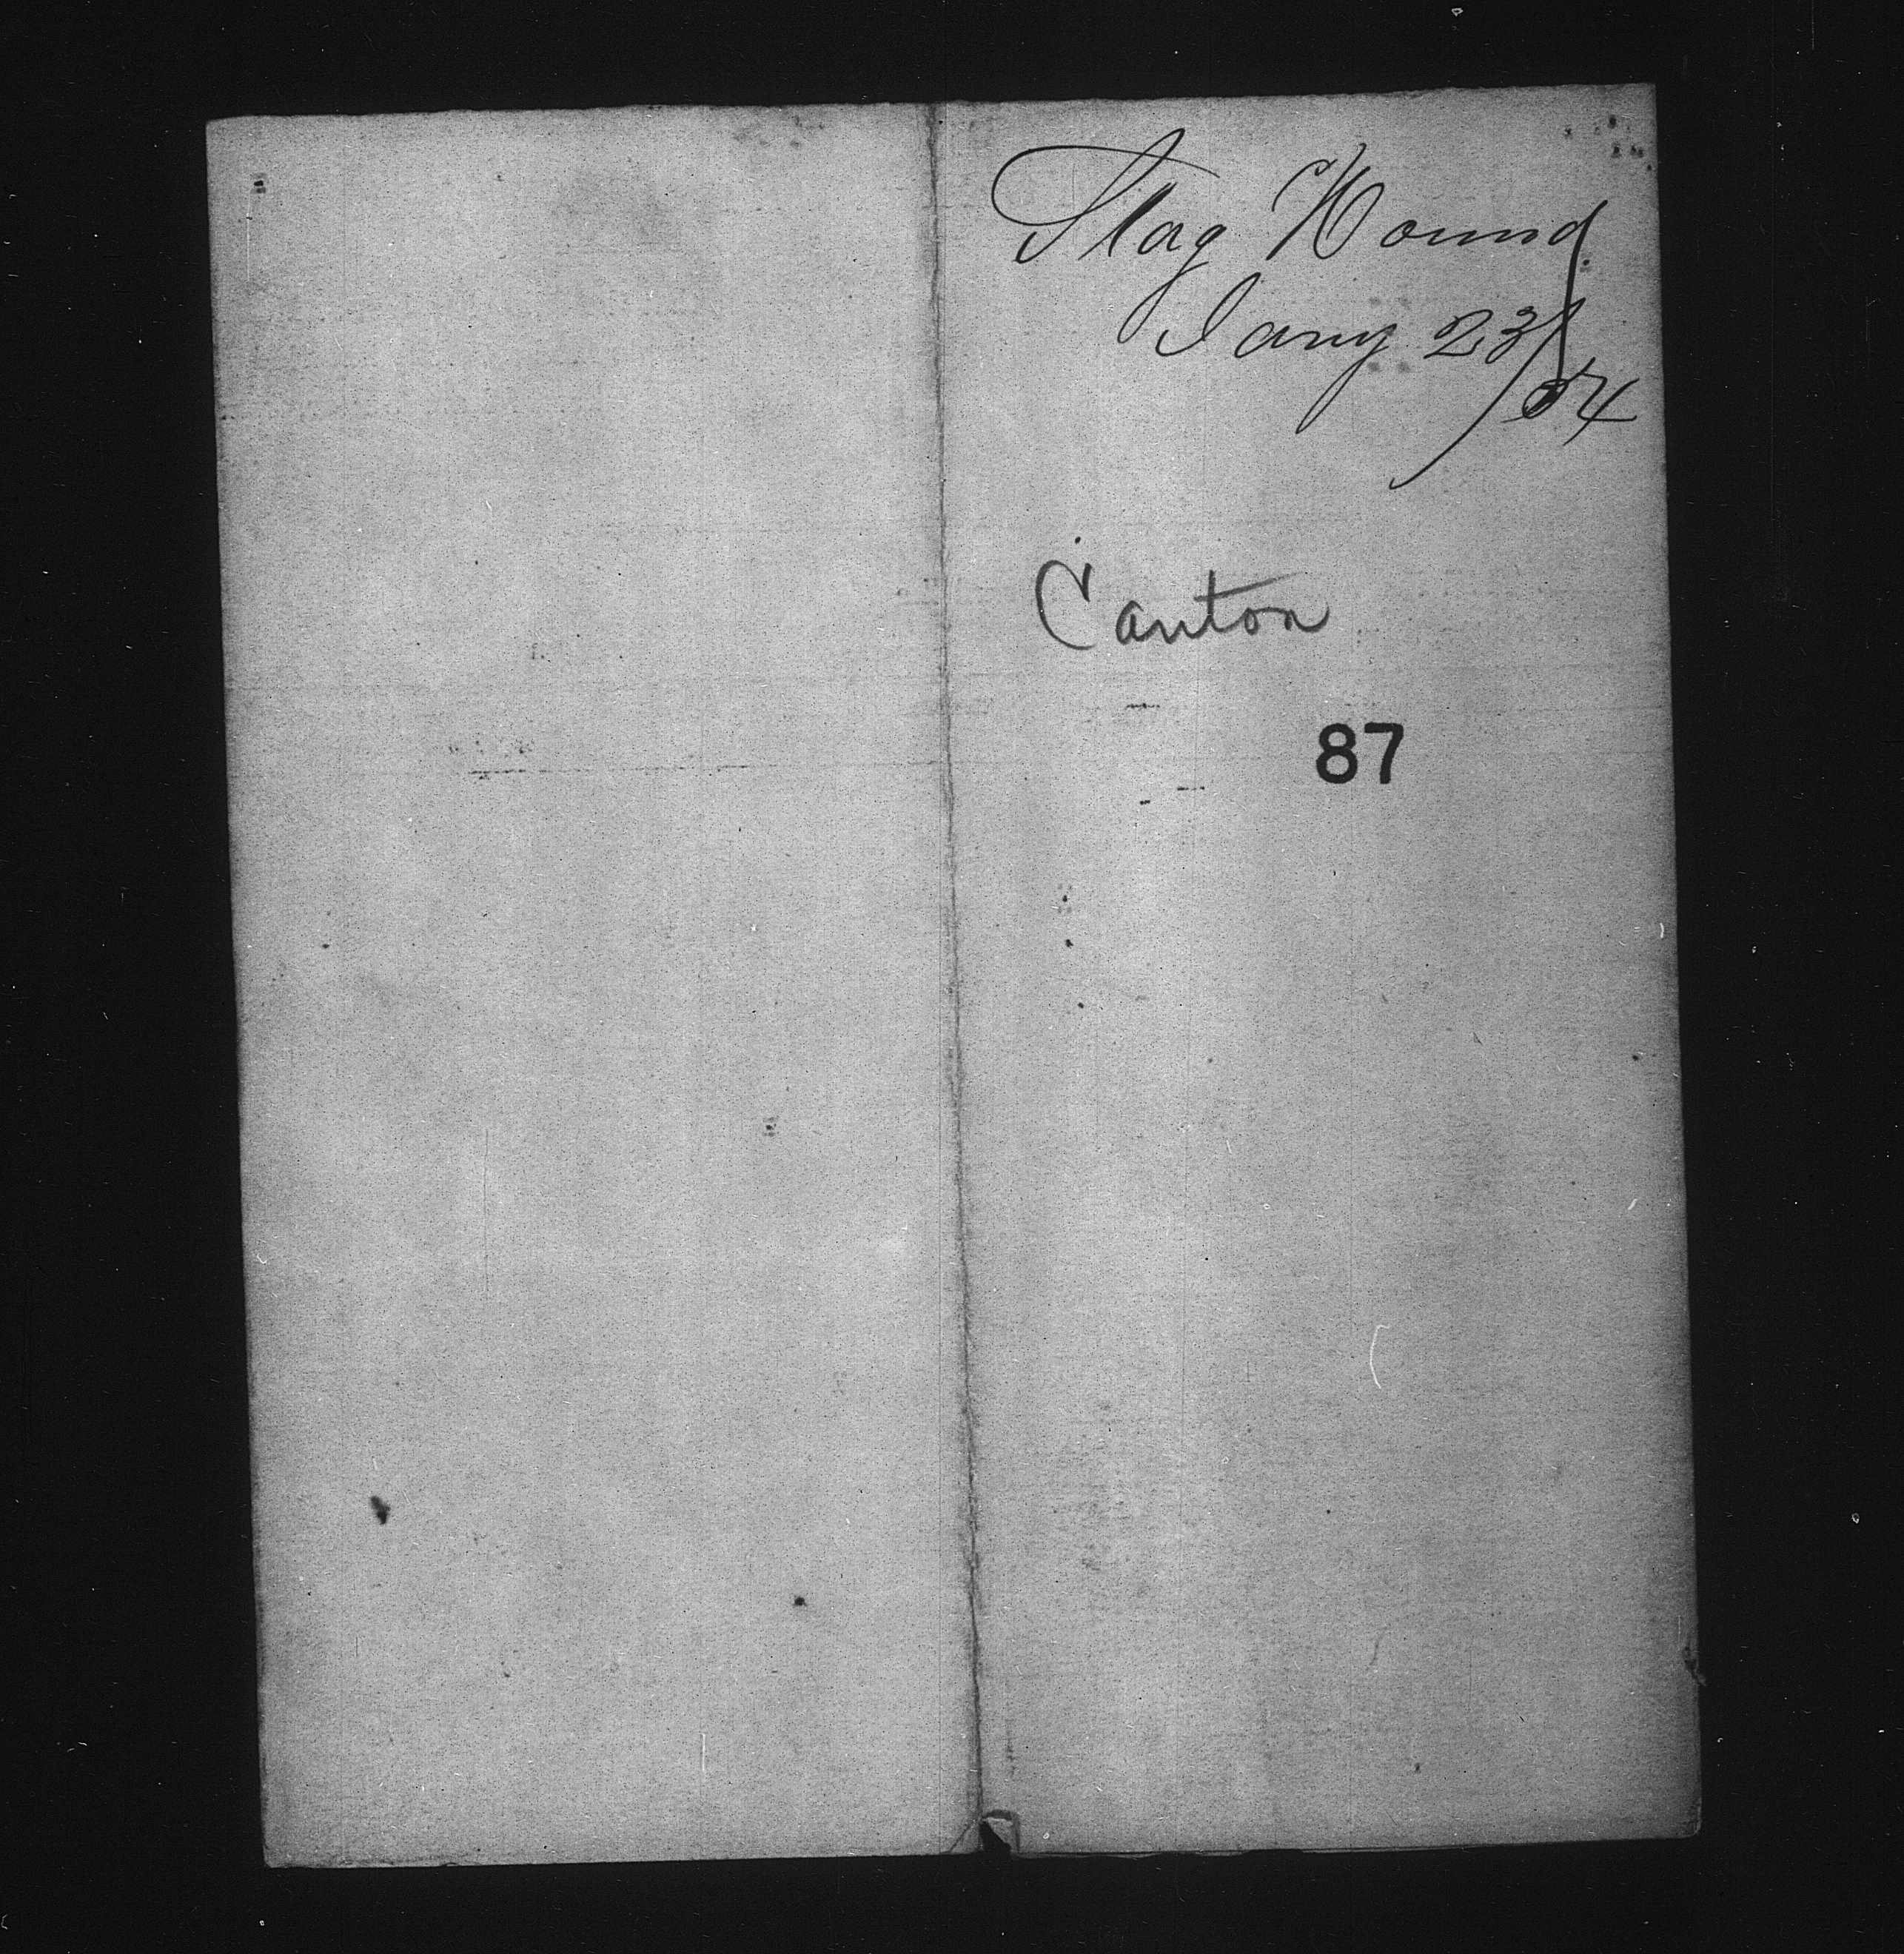 Stag Hound
Jany 23/54
Canton
87